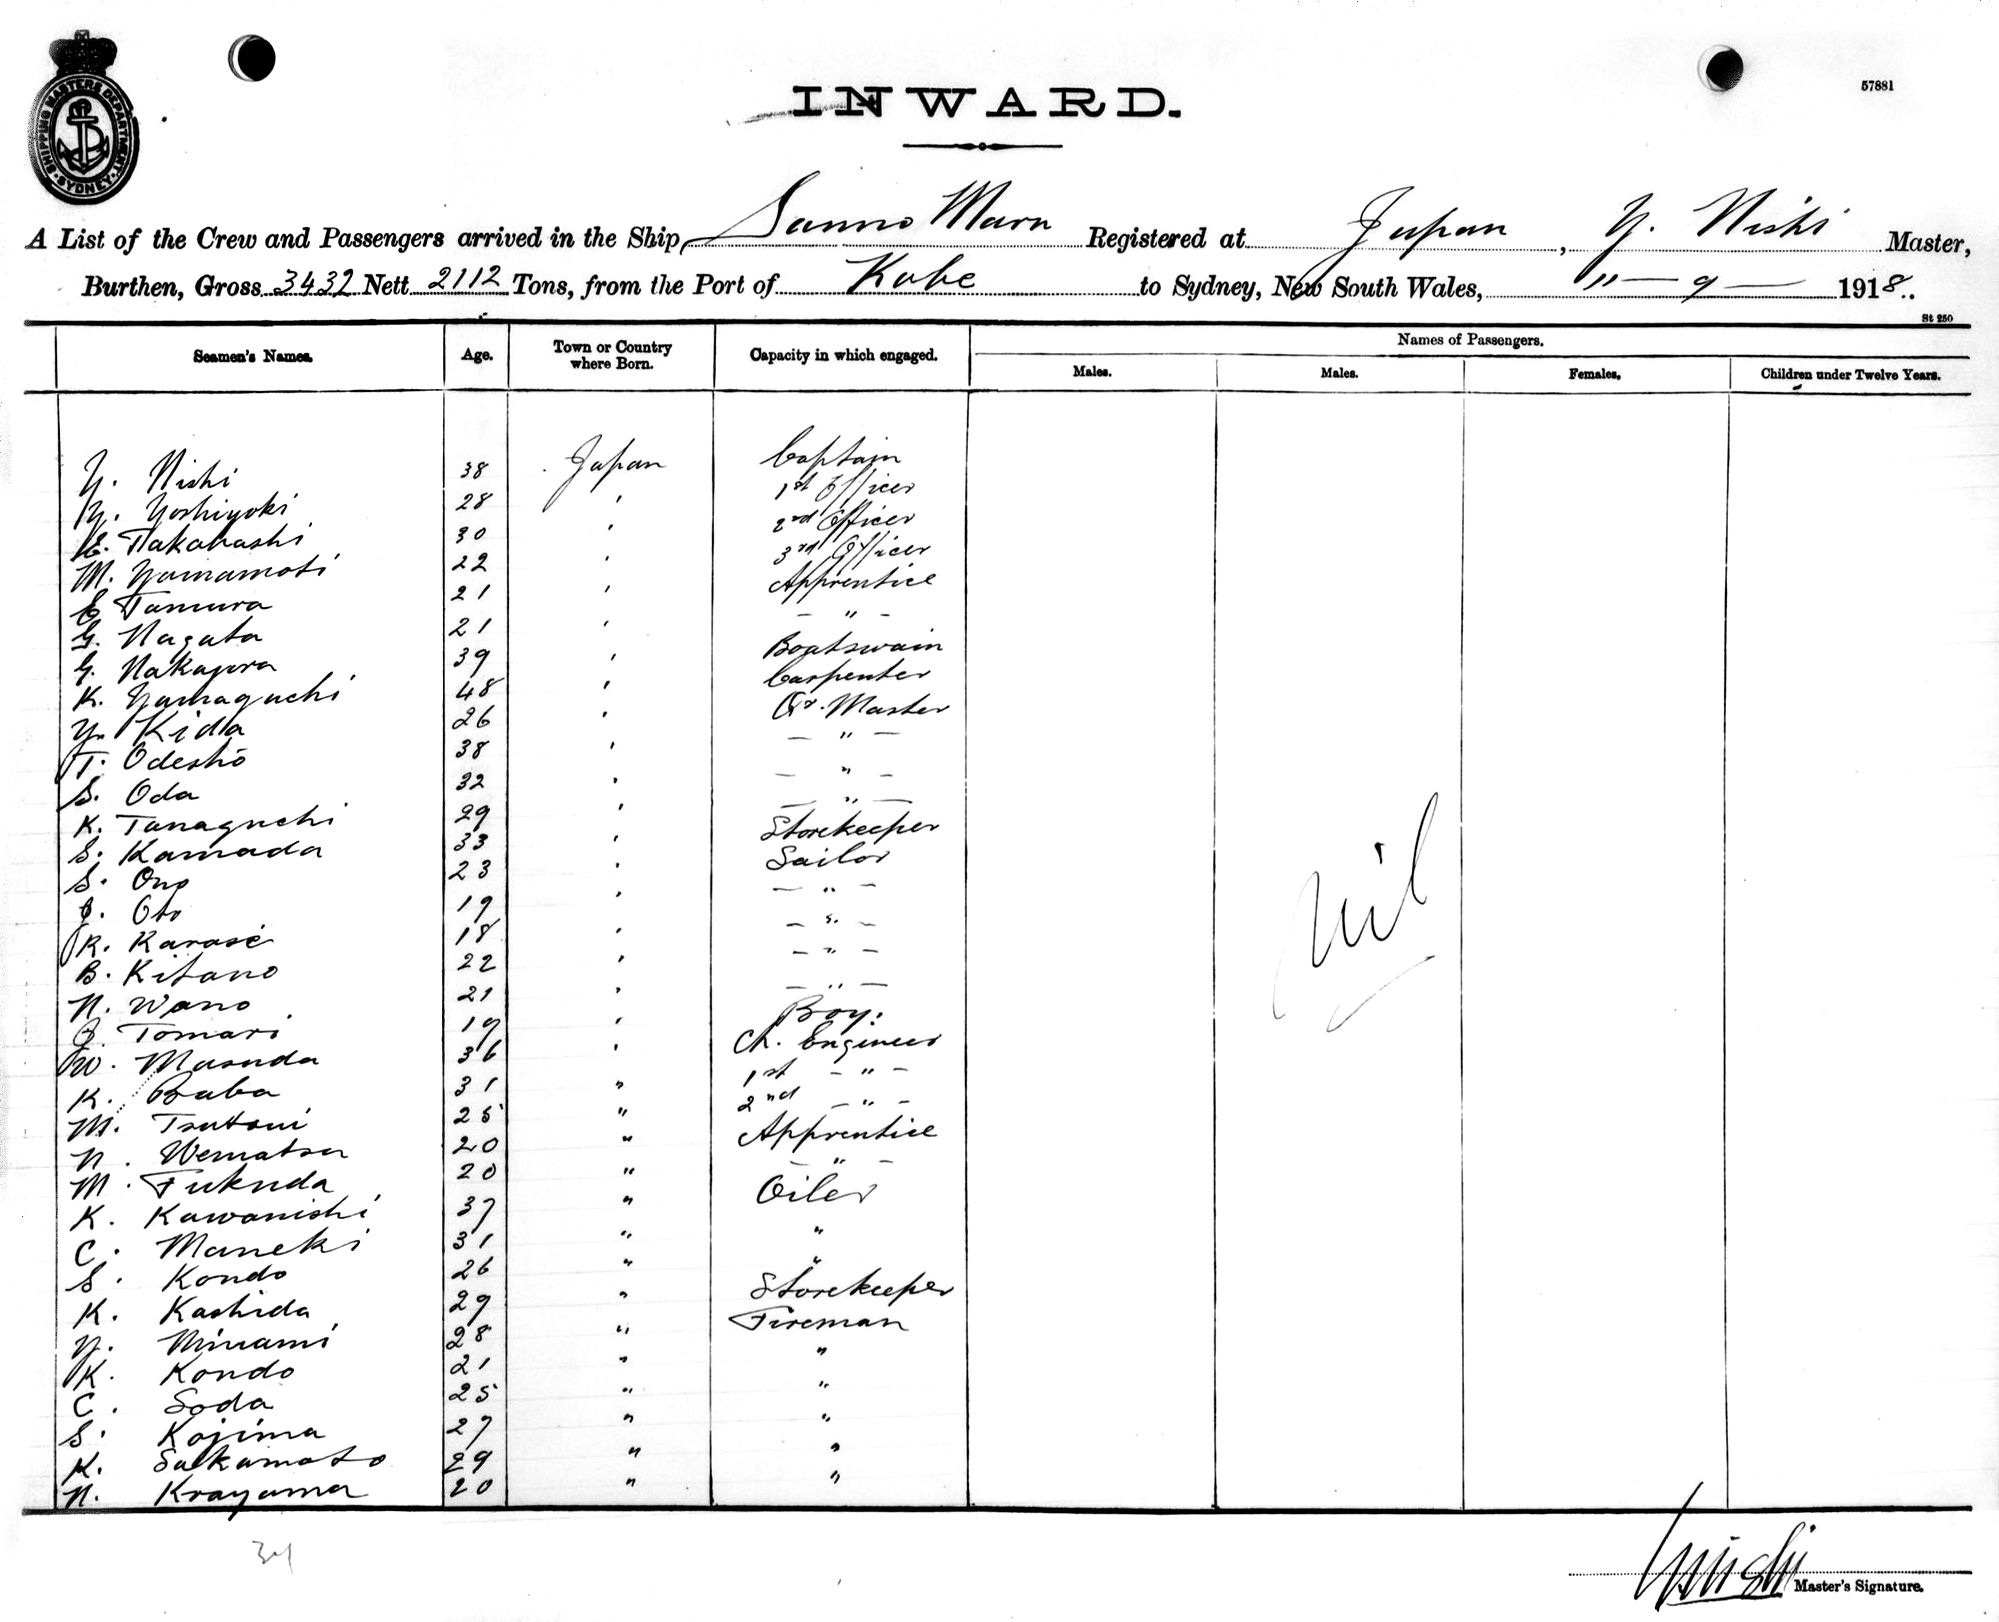 SHIPPING MASTERS DEPARTMENT
SYDNEY
57881
INWARD.
A List of the Crew and Passengers arrived in the Ship, Sanno Maru Registered at Japan, Y. Nishi Master,
Burthen, Gross 3432 Nett 2112 Tons, from the Port of Kobe to Sydney, New South Wales, 11 — 9 — 1918..
St 250
Seamen's Names. Age. Town or Country where Born. Capacity in which engaged. Names of Passengers.
Males. Males. Females. Children under Twelve Years.
Y. Nishi 38 Japan Captain
Y. Yoshiyoki 28 " 1st Officer
E. Takahashi 30 " 2nd Officer
M. Yamamoti 22 " 3rd Officer
E Tamura 21 " Apprentice
G. Nagata 21 " — " —
G. Nakajora 39 " Boatswain
K. Yamaguchi 48 " Carpenter
Y. Kida 26 " Qr. Master
T. Odeshō 38 " — " —
S. Oda 32 " — " —
K. Tanaguchi 29 " — " —
S. Kamada 33 " Storekeeper
S. Ono 23 " Sailor
J. Oto 19 " — " —
R. Karase 18 " — " —
B. Kitano 22 " — " —
N. Wano 21 " — " —
J. Tomari 19 " Boy.
W. Masuda 36 " Ch. Engineer
K. Baba 31 " 1st — " —
M. Tsutsui 25 " 2nd — " —
N. Wematsu 20 " Apprentice
M. Fukuda 20 " — " —
K. Kawanishi 37 " Oiler
C. Maneki 31 " "
S. Kondo 26 " "
K. Kashida 29 " Storekeeper
Y. Minami 28 " Fireman
K. Kondo 21 " "
C. Soda 25 " "
S. Kojima 27 " "
K. Sakamoto 29 " "
N. Krayama 20 " "
Nil
34
Y. Nishi
Master's Signature.